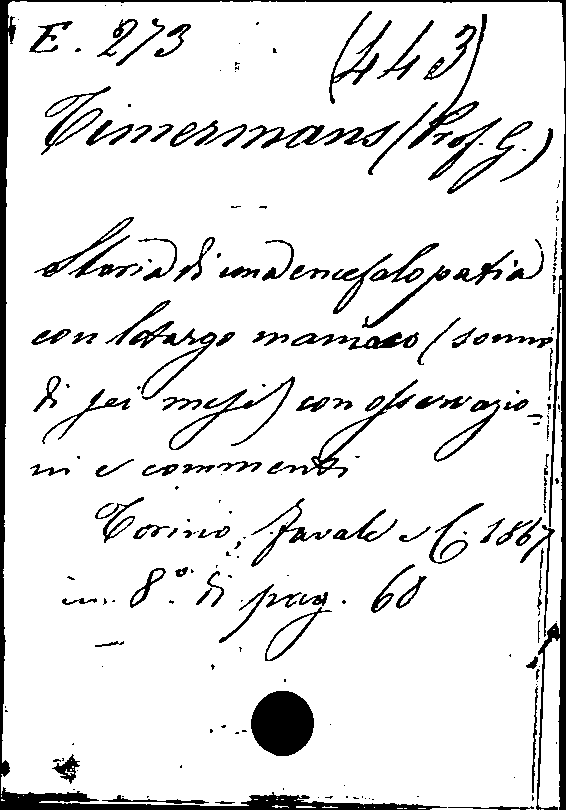 E. 273 (443)
Timermans (Prof. G.)
Storia di una encefalopatia
con letargo maniaco (sonno
di sei mesi) con osservazio=
ni e commenti
Torino, Favale e C. 1867
in 8.° di pag. 60